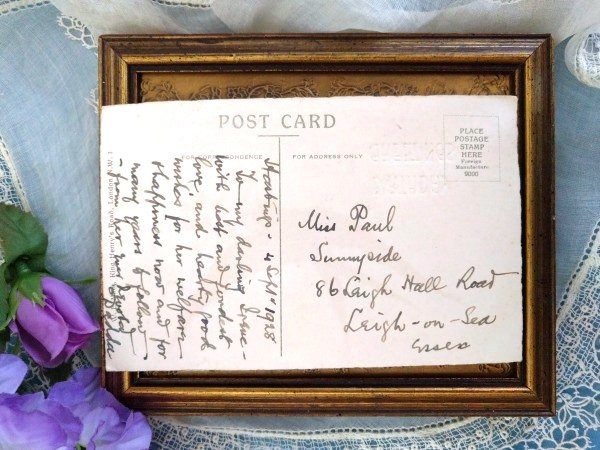 POST CARD
FOR CORRESPONDENCE
FOR ADDRESS ONLY
PLACE
POSTAGE
STAMP
HERE
Foreign
Manufacture
9000
Hastings - 4 Sept 1928
To my darling Irene -
with best and fondest
love, and hearty good
wishes for her welfare
& happiness now and for
many years to follow
- from her
Miss Paul
Sunnyside
86 Leigh Hall Road
Leigh-on-Sea
Essex